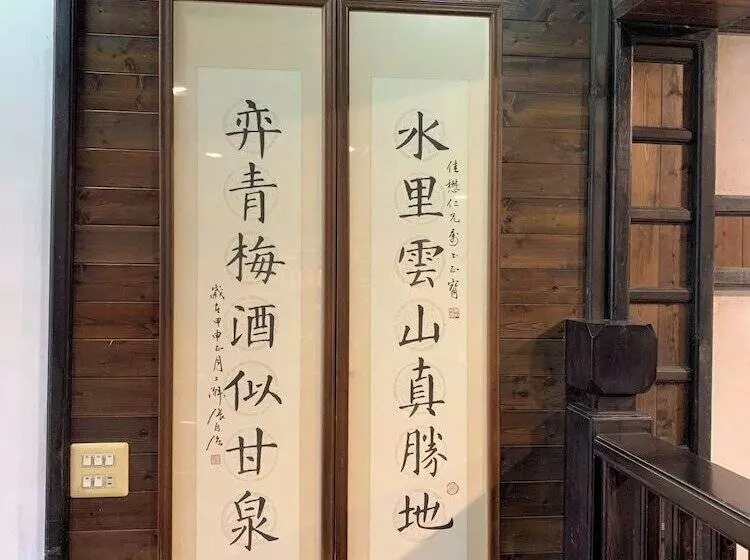 水里雲山真勝地
佳懋仁兄
弈青梅酒似甘泉
歲在甲申正月上澣